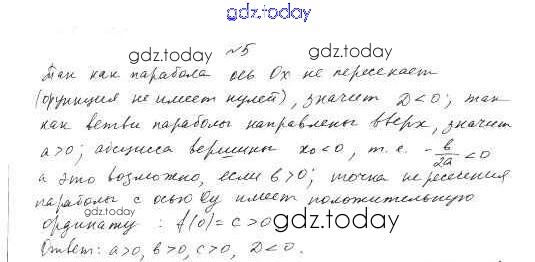 gdz.today
№5
gdz.today gdz.today
Так как парабола ось Ox не пересекает
(функция не имеет нулей), значит D<0; так
как ветви параболы направлены вверх, значит
a>0; абсцисса вершины x₀<0, т.е. -b/2a<0
а это возможно, если b>0; точка пересечения
параболы с осью Oy имеет положительную
gdz.today
ординату: f(0)=c>0 gdz.today
Ответ: a>0, b>0, c>0, D<0.